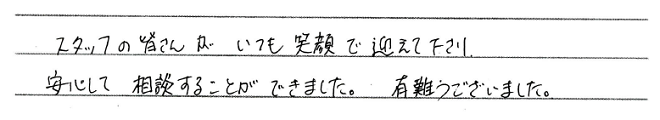 スタッフの皆さんが いつも 笑顔で 迎えて下さり、
安心して 相談することができました。 有難うございました。